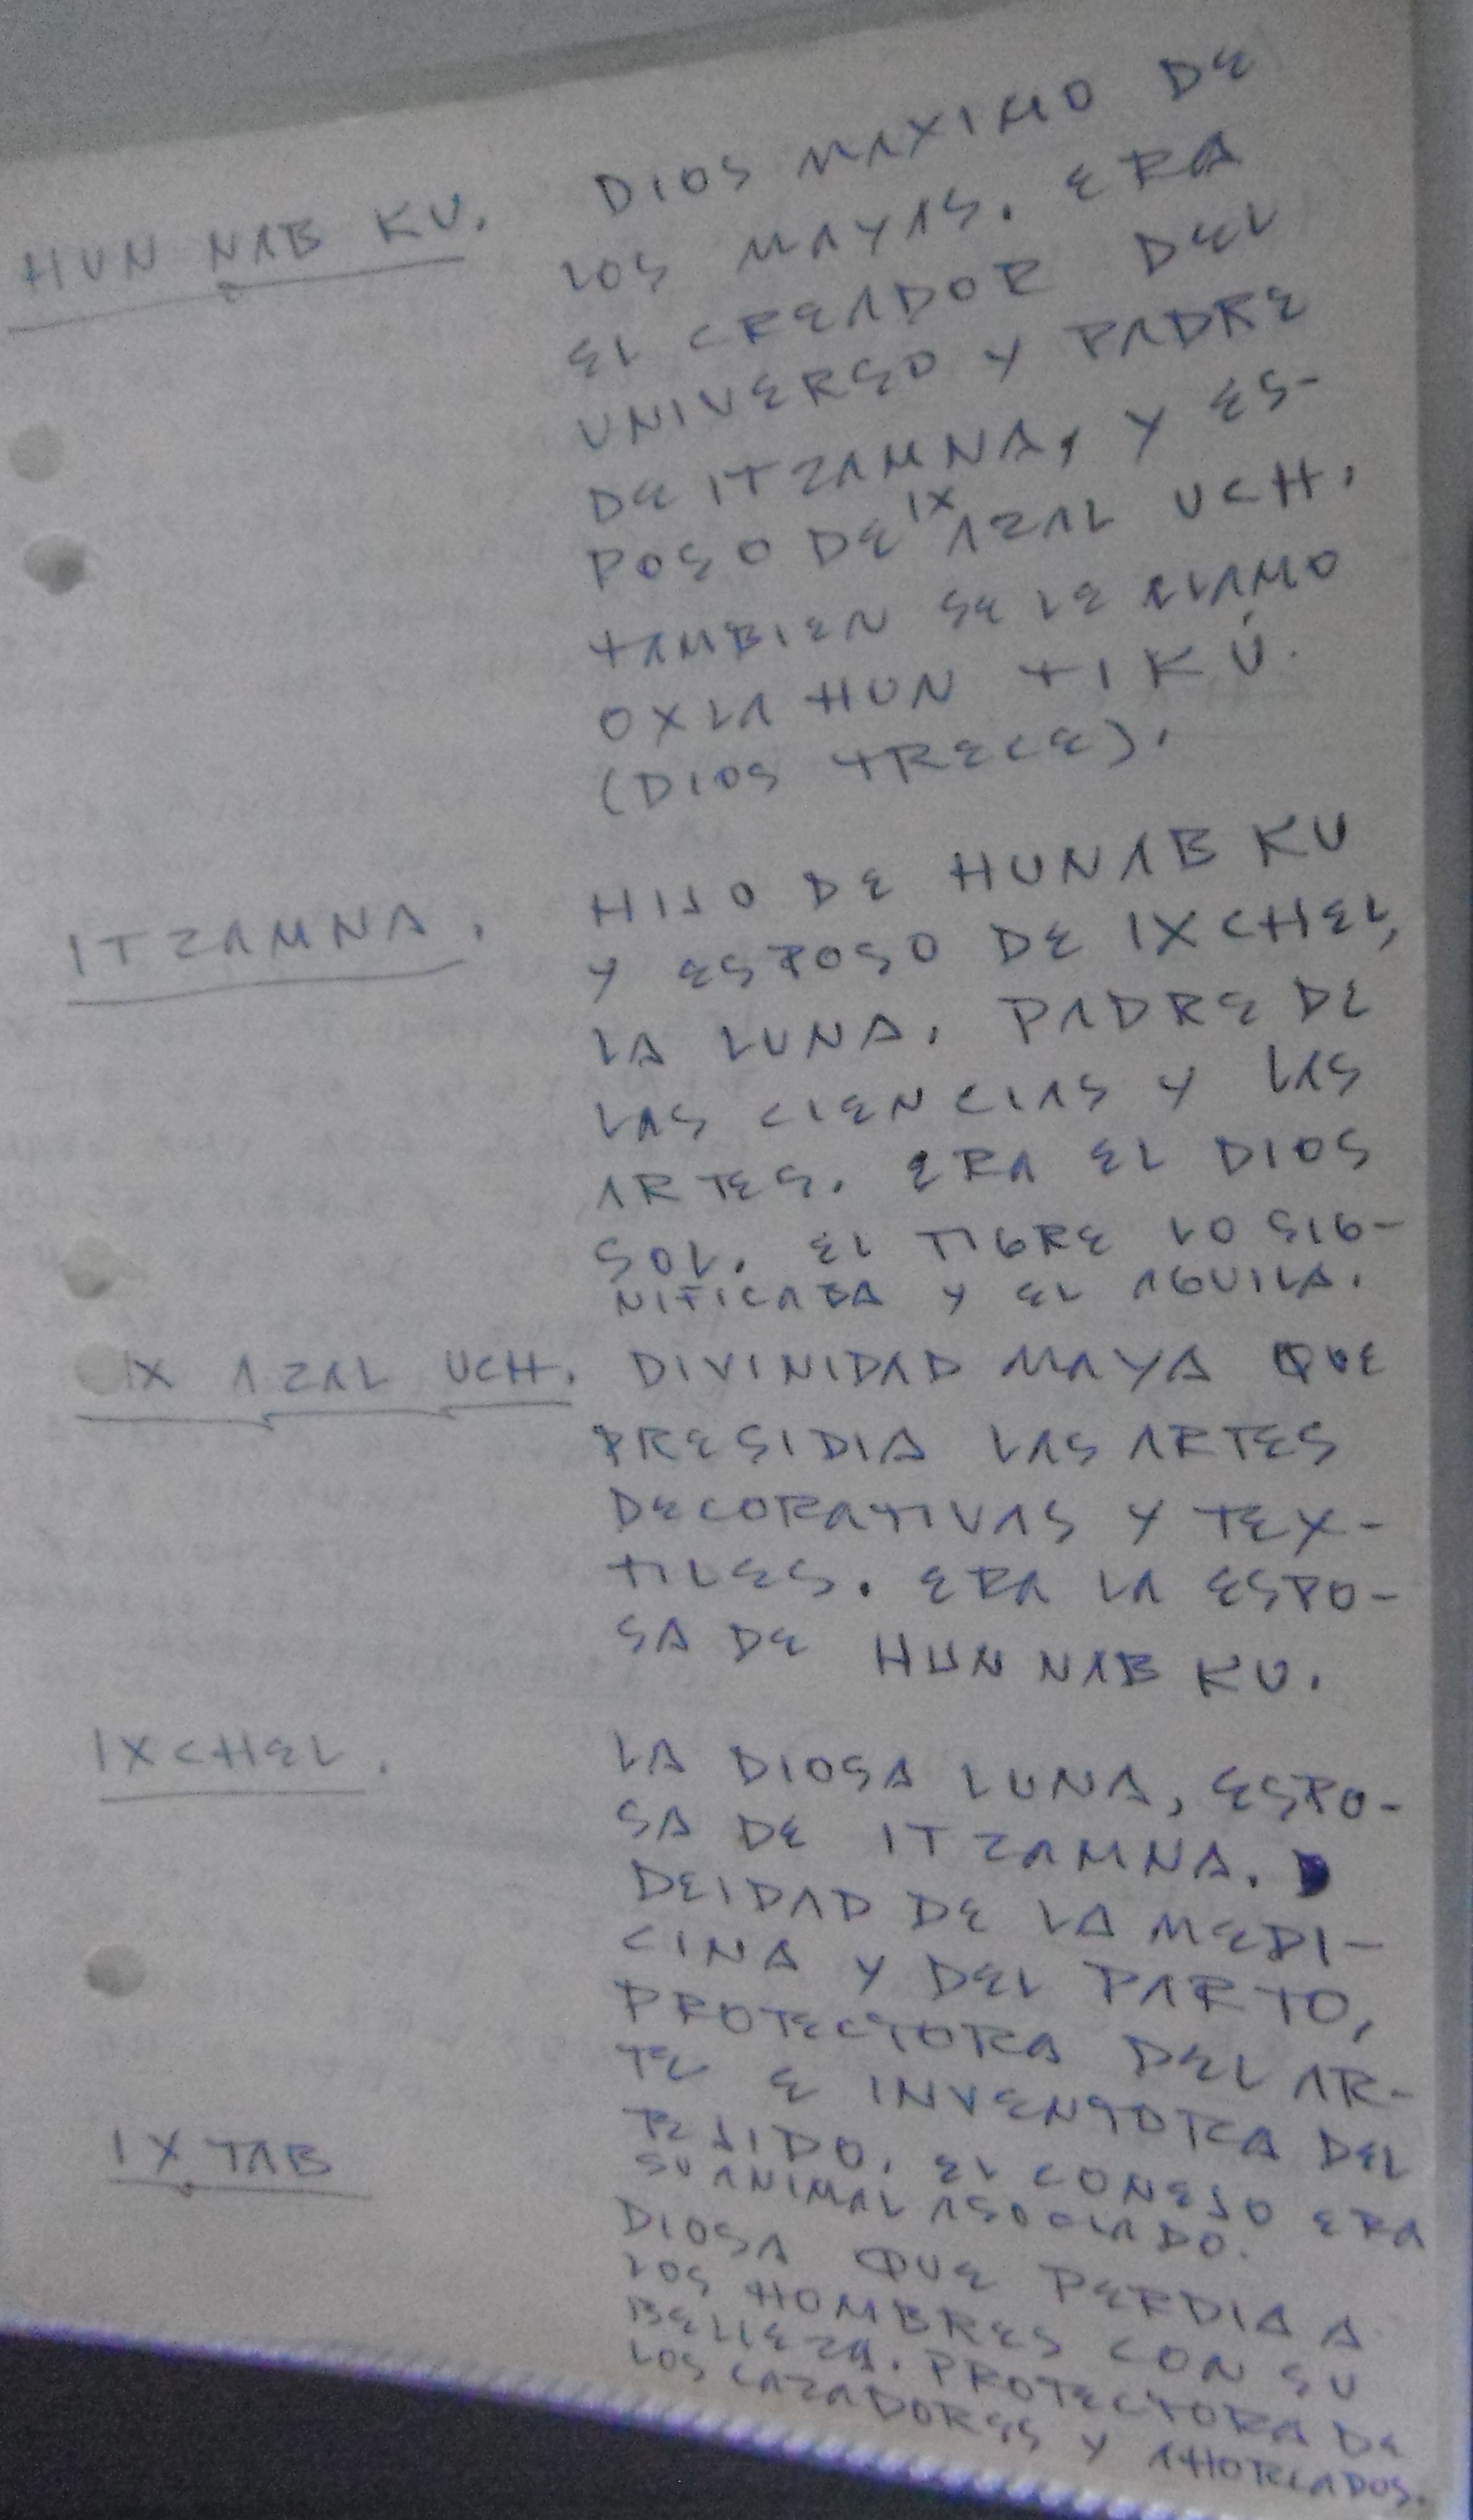 HUN NAB KU. DIOS MAXIMO DE
LOS MAYAS. ERA
EL CREADOR DEL
UNIVERSO Y PADRE
DE ITZAMNA, Y ES-
POSO DE IX AZAL UCH.
TAMBIEN SE LE LLAMO
OXLA HUN TI KÚ.
(DIOS TRECE).
ITZAMNA. HIJO DE HUNAB KU
Y ESPOSO DE IXCHEL,
LA LUNA. PADRE DE
LAS CIENCIAS Y LAS
ARTES. ERA EL DIOS
SOL. EL TIGRE LO SIG-
NIFICABA Y EL AGUILA.
IX AZAL UCH. DIVINIDAD MAYA QUE
PRESIDIA LAS ARTES
DECORATIVAS Y TEX-
TILES. ERA LA ESPO-
SA DE HUN NAB KU.
IXCHEL. LA DIOSA LUNA, ESPO-
SA DE ITZAMNA.
DEIDAD DE LA MEDI-
CINA Y DEL PARTO,
PROTECTORA DEL AR-
TE E INVENTORA DEL
TEJIDO. EL CONEJO ERA
SU ANIMAL ASOCIADO.
IXTAB DIOSA QUE PERDIA A
LOS HOMBRES CON SU
BELLEZA. PROTECTORA DE
LOS CAZADORES Y AHORCADOS.